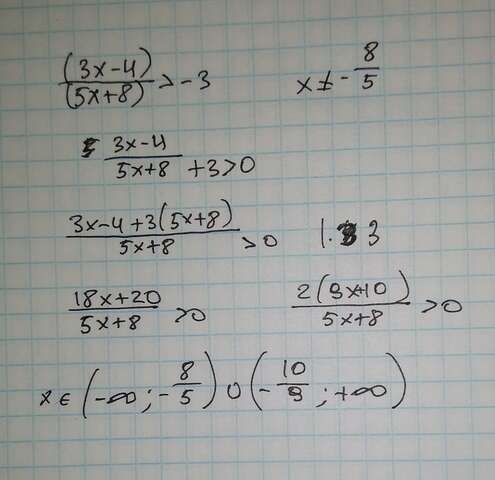 (3x-4)/(5x+8) > -3    x ≠ -8/5
(3x-4)/(5x+8) + 3 > 0
(3x-4+3(5x+8))/(5x+8) > 0    1. 3
(18x+20)/(5x+8) > 0    2(9x+10)/(5x+8) > 0
x ∈ (-∞; -8/5) ∪ (-10/9; +∞)